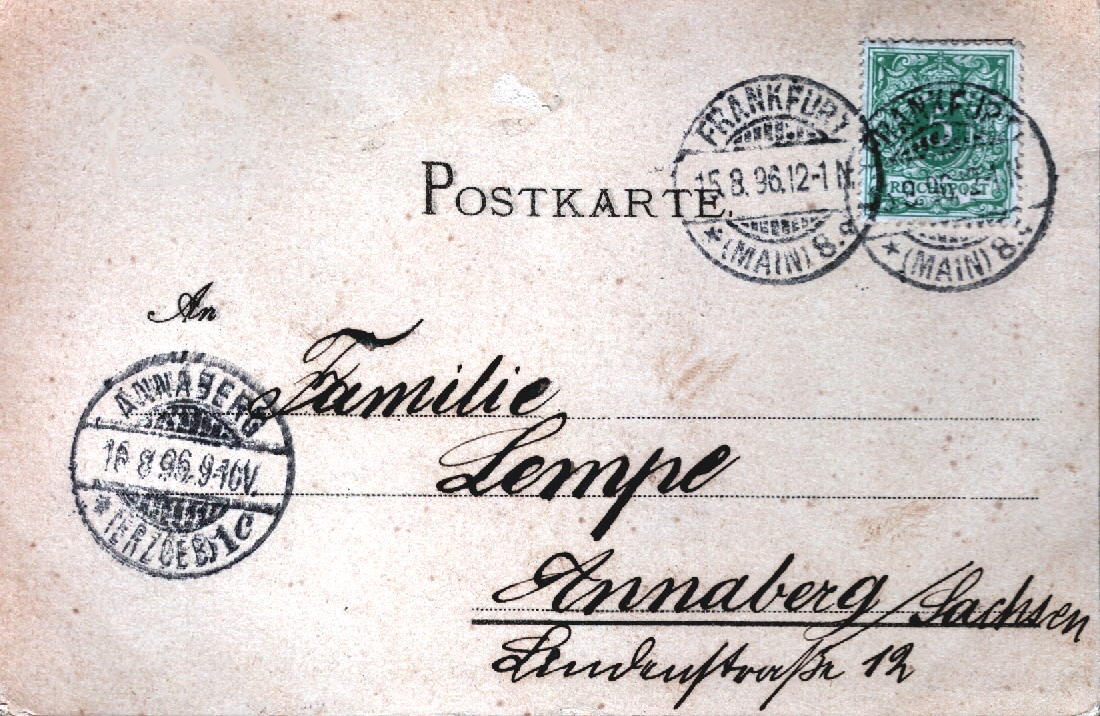 POSTKARTE.
FRANKFURT
15.8.96.12-1 N.
* (MAIN) 8.
FRANKFURT
5
REICHSPOST
* (MAIN) 8.
An
Familie
Lempe
Annaberg / Sachsen
Lindenstraße 12
ANNABERG
16 8 96 9-10V.
* (ERZGEB) 1c